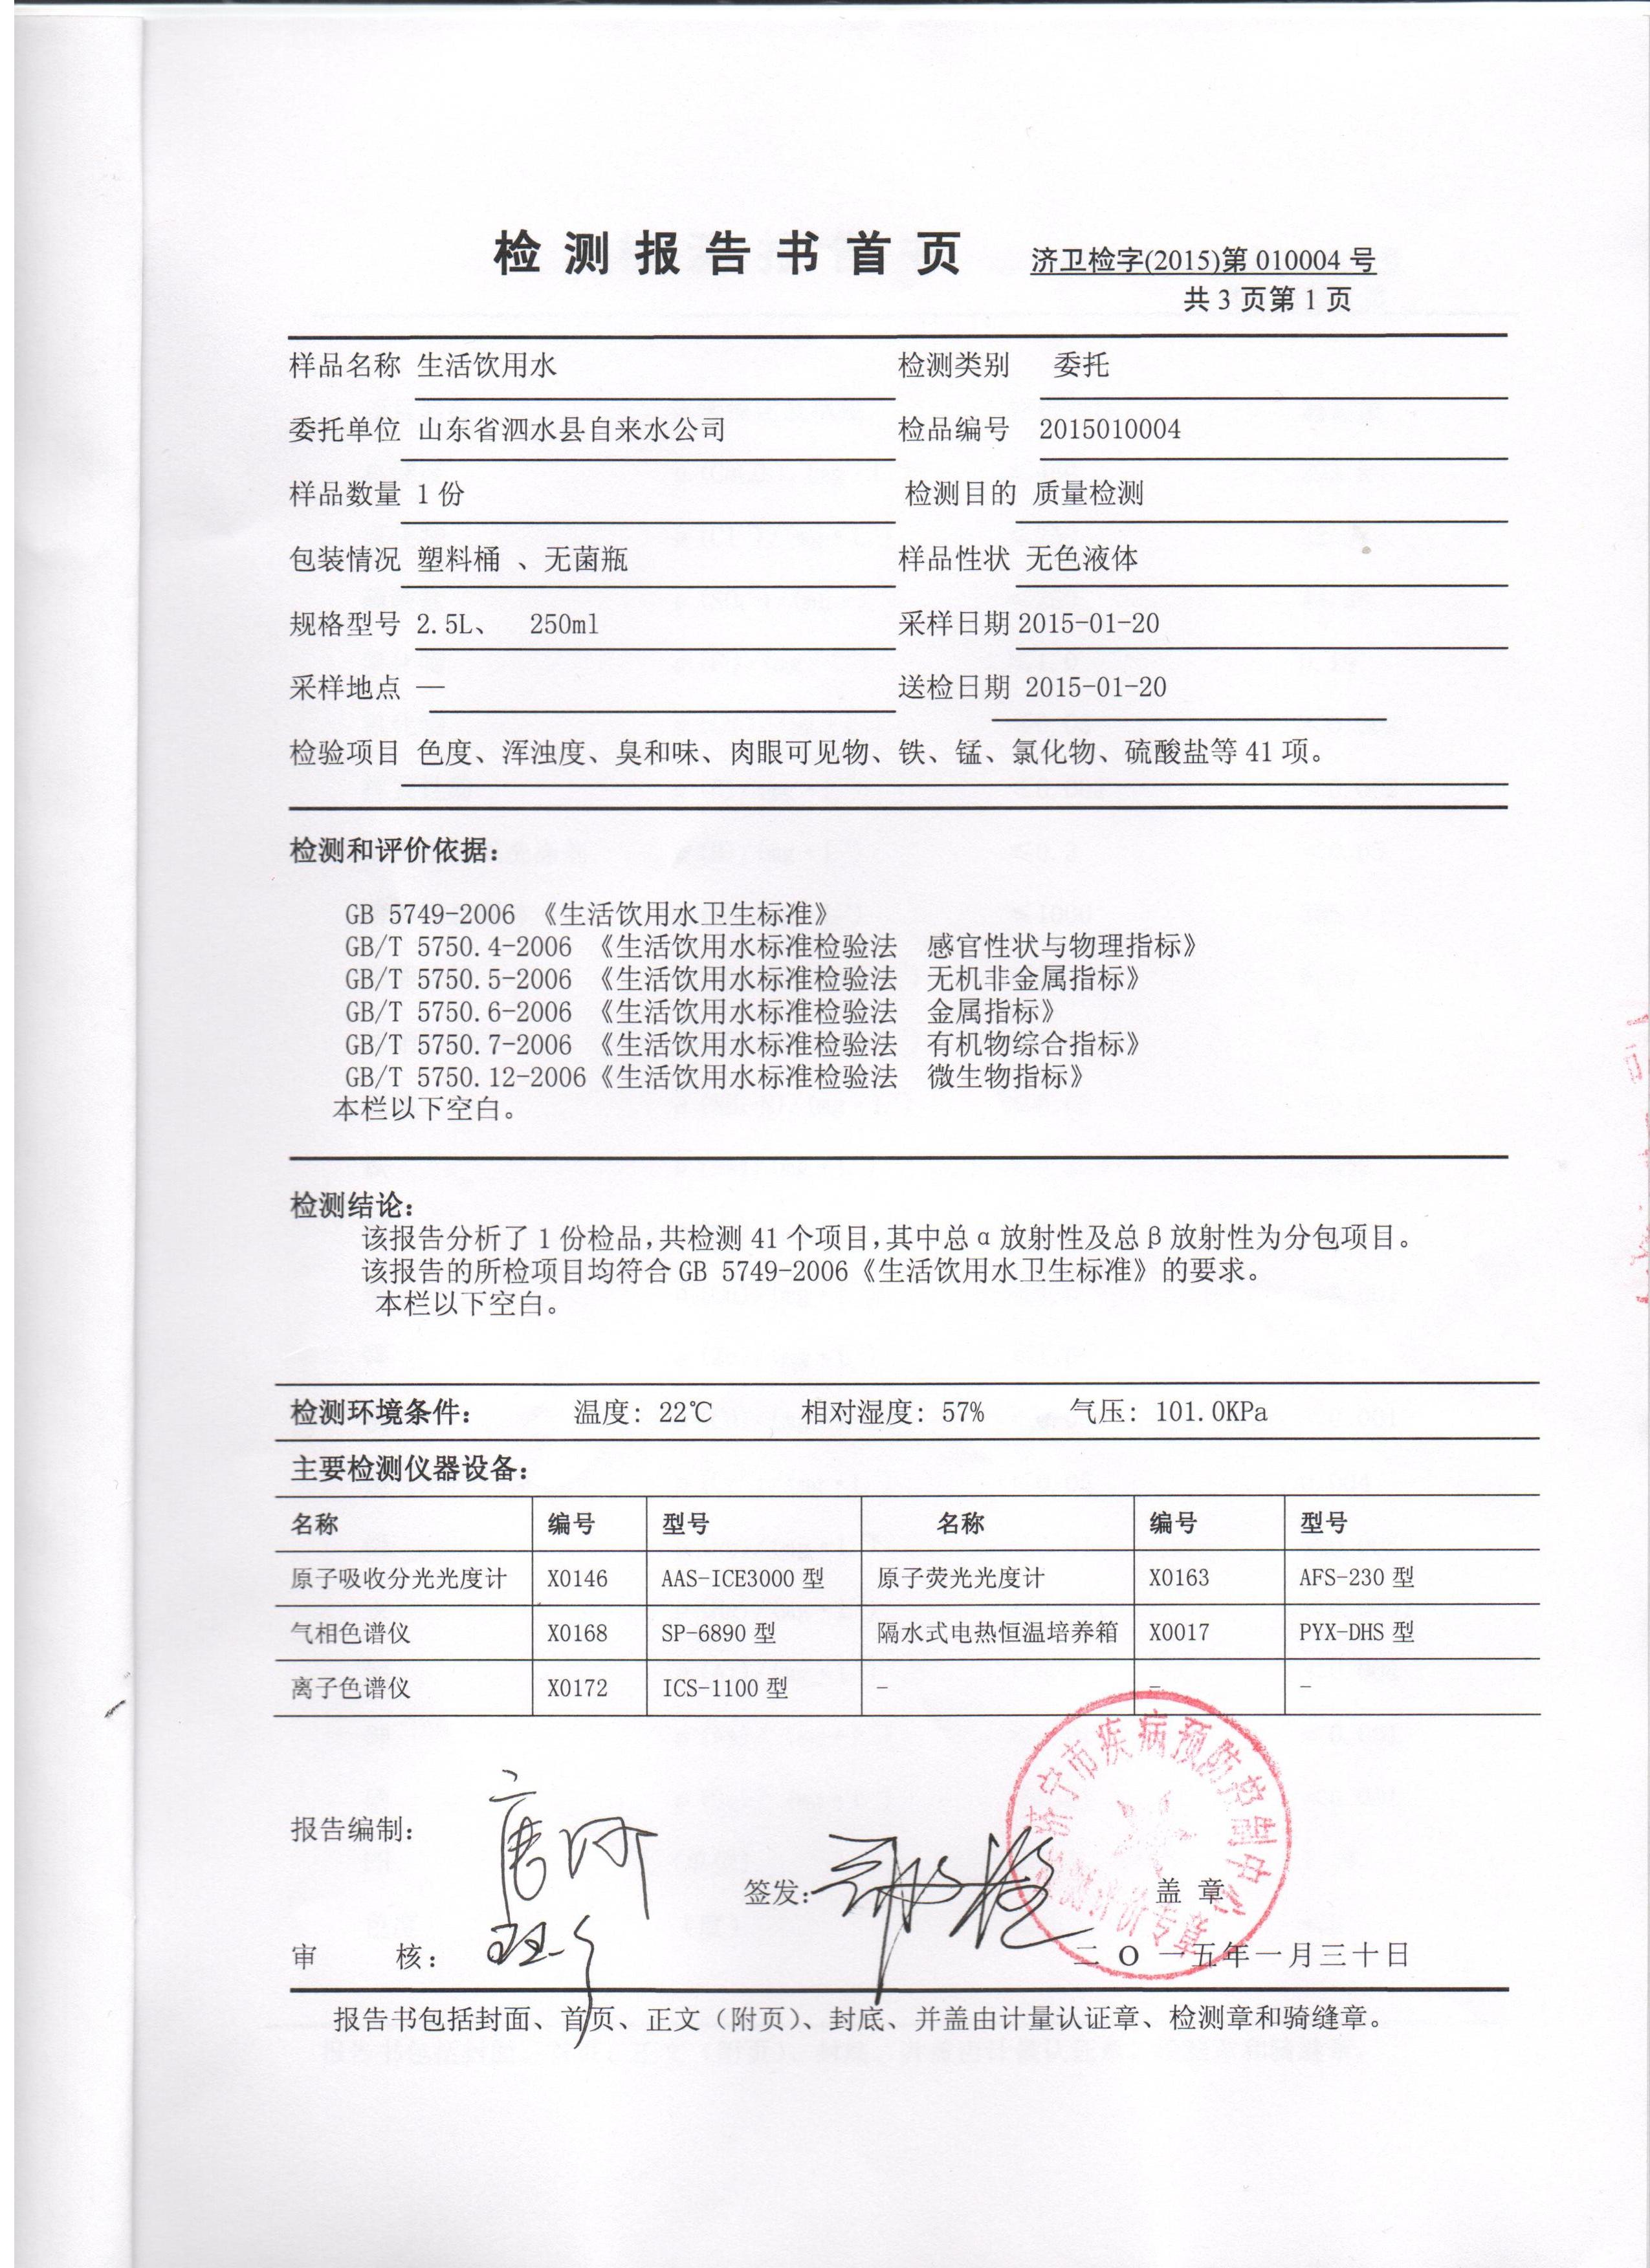 检测报告书首页 济卫检字(2015)第 010004 号
共 3 页第 1 页
样品名称 生活饮用水 检测类别 委托
委托单位 山东省泗水县自来水公司 检品编号 2015010004
样品数量 1 份 检测目的 质量检测
包装情况 塑料桶 、无菌瓶 样品性状 无色液体
规格型号 2.5L、 250ml 采样日期 2015-01-20
采样地点 — 送检日期 2015-01-20
检验项目 色度、浑浊度、臭和味、肉眼可见物、铁、锰、氯化物、硫酸盐等 41 项。
检测和评价依据：
GB 5749-2006 《生活饮用水卫生标准》
GB/T 5750.4-2006 《生活饮用水标准检验法 感官性状与物理指标》
GB/T 5750.5-2006 《生活饮用水标准检验法 无机非金属指标》
GB/T 5750.6-2006 《生活饮用水标准检验法 金属指标》
GB/T 5750.7-2006 《生活饮用水标准检验法 有机物综合指标》
GB/T 5750.12-2006《生活饮用水标准检验法 微生物指标》
本栏以下空白。
检测结论：
该报告分析了 1 份检品,共检测 41 个项目,其中总 α 放射性及总 β 放射性为分包项目。
该报告的所检项目均符合 GB 5749-2006《生活饮用水卫生标准》的要求。
本栏以下空白。
检测环境条件： 温度: 22℃ 相对湿度: 57% 气压: 101.0KPa
主要检测仪器设备：
名称 编号 型号 名称 编号 型号
原子吸收分光光度计 X0146 AAS-ICE3000 型 原子荧光光度计 X0163 AFS-230 型
气相色谱仪 X0168 SP-6890 型 隔水式电热恒温培养箱 X0017 PYX-DHS 型
离子色谱仪 X0172 ICS-1100 型 - - -
济宁市疾病预防控制中心
检测评价专章
报告编制：
签发： 盖 章
审 核：
二 O 一五年一月三十日
报告书包括封面、首页、正文（附页）、封底、并盖由计量认证章、检测章和骑缝章。